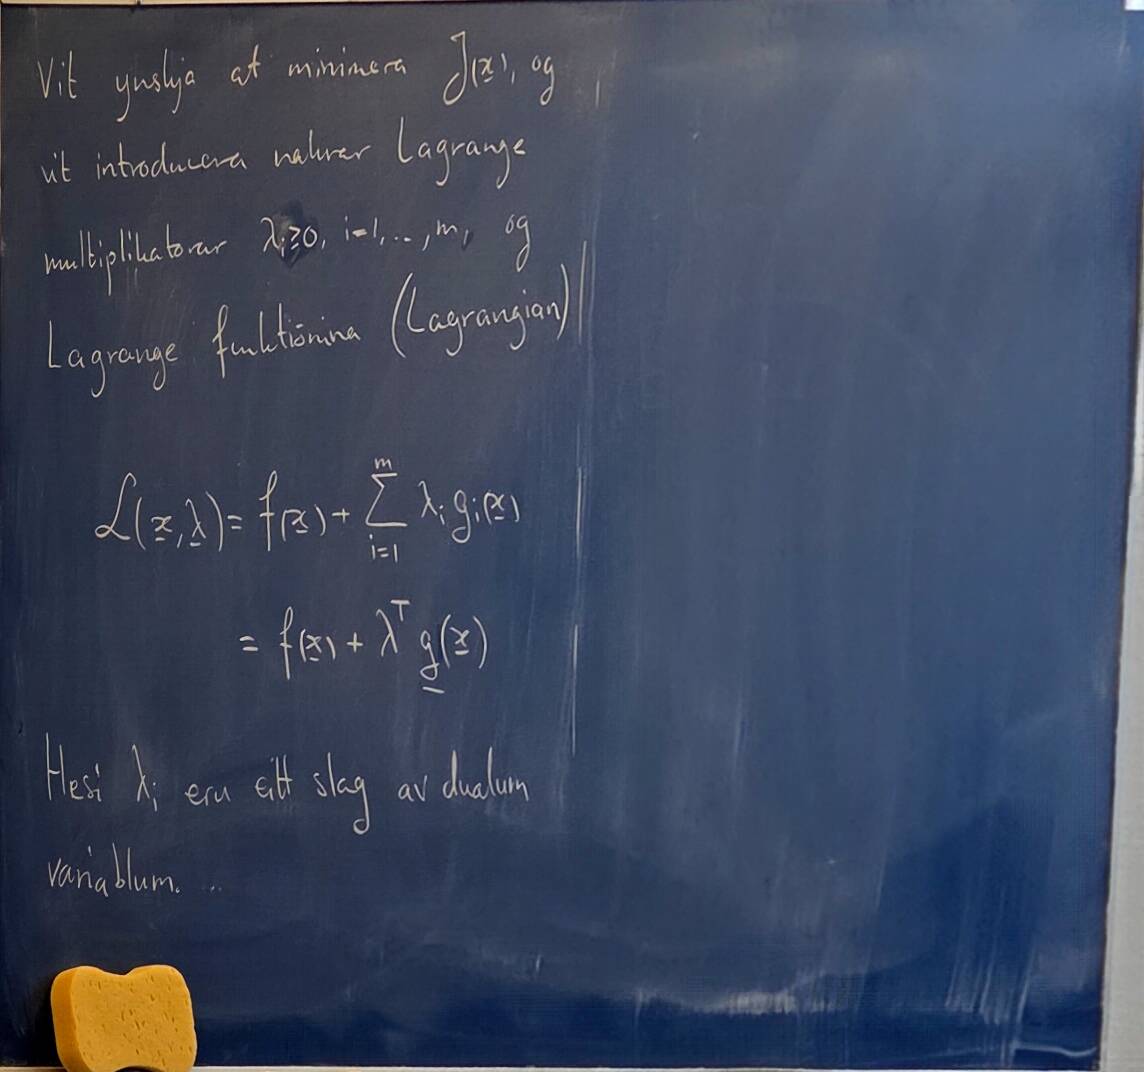 Vit ynskja at minimera J(x), og
vit introducera nakrar Lagrange
multiplikatorar λᵢ≥0, i=1,...,m, og
Lagrange funktiónina (Lagrangian)
L(x,λ) = f(x) + ∑_{i=1}^{m} λᵢ gᵢ(x)
= f(x) + λᵀ g(x)
Hesi λᵢ eru eitt slag av dualum
variablum. ...